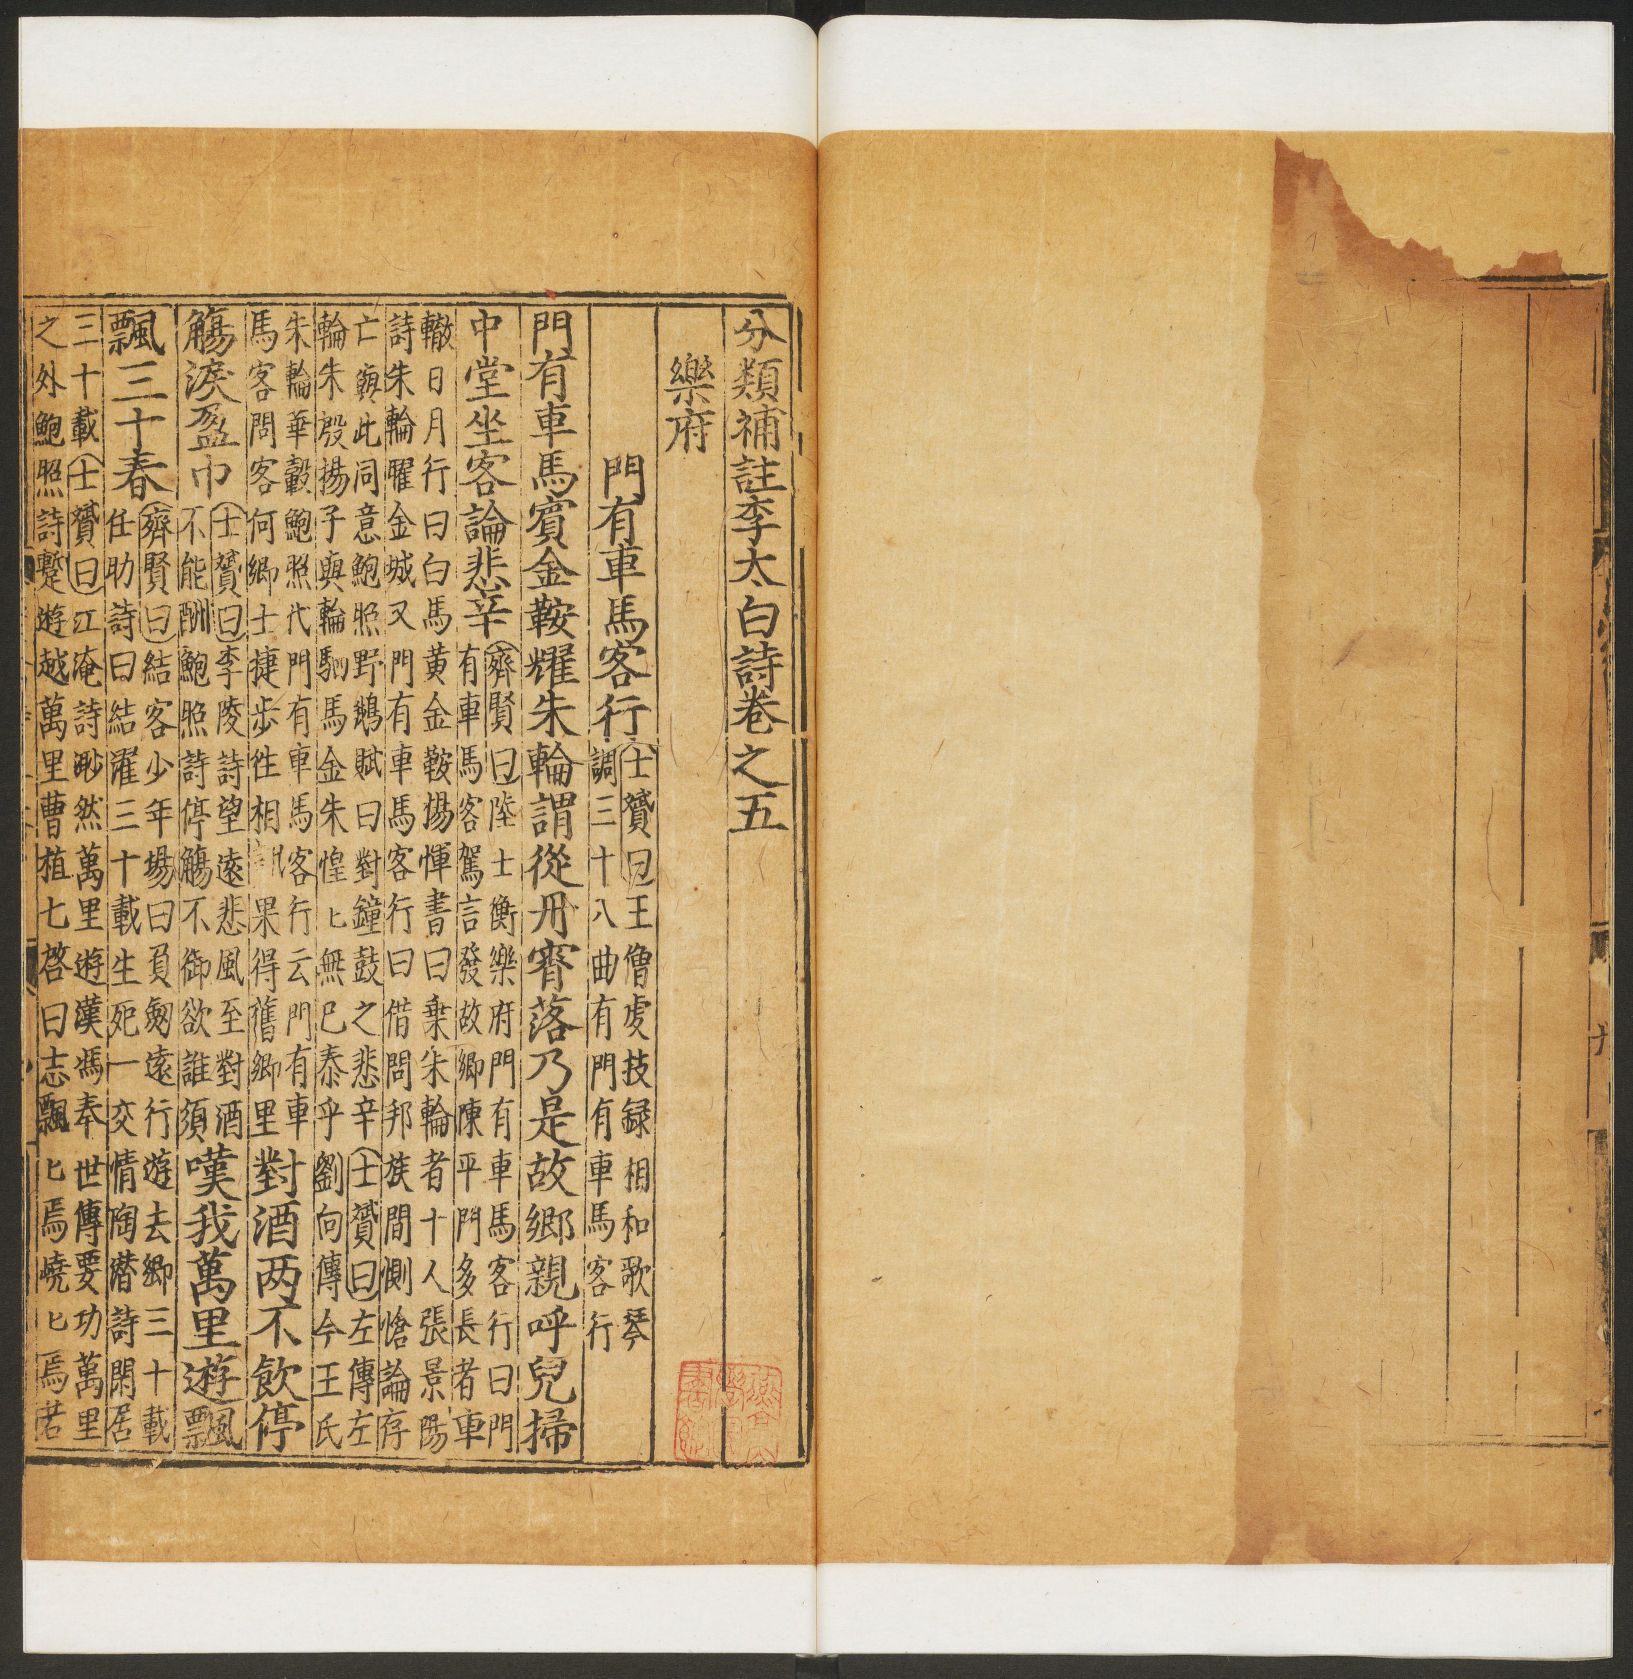 分類補註李太白詩卷之五
樂府
門有車馬客行
士贇曰王僧虔技録相和歌琴
調三十八曲有門有車馬客行
門有車馬賓金鞍耀朱輪謂從丹霄落乃是故鄉親呼兒掃
中堂坐客論悲辛
齊賢曰陸士衡樂府門有車馬客行曰門
有車馬客駕言發故鄉陳平門多長者車
轍日月行曰白馬黄金鞍楊惲書曰乗朱輪者十人張景陽
詩朱輪曜金城又門有車馬客行曰借問邦族間惻愴論存
亡頗此同意鮑照野鵝賦曰對鐘鼓之悲辛士贇曰左傳左
輪朱殷揚子輿輪駟馬金朱惶匕無已泰乎劉向傳今王氏
朱輪華轂鮑照代門有車馬客行云門有車
馬客問客何鄉士捷步往相訊果得舊鄉里
對酒两不飲停
觴淚盈巾
士贇曰李陵詩望遠悲風至對酒
不能酬鮑照詩停觴不御欲誰須
嘆我萬里遊飄
飄三十春
齊賢曰結客少年場曰負劒遠行遊去鄉三十載
任助詩曰結濯三十載生死一交情陶潜詩閑居
三十載士贇曰江淹詩眇然萬里遊漢馮奉世傳要功萬里
之外鮑照詩蹔遊越萬里曹植七啓曰志飄匕焉嶢匕焉若